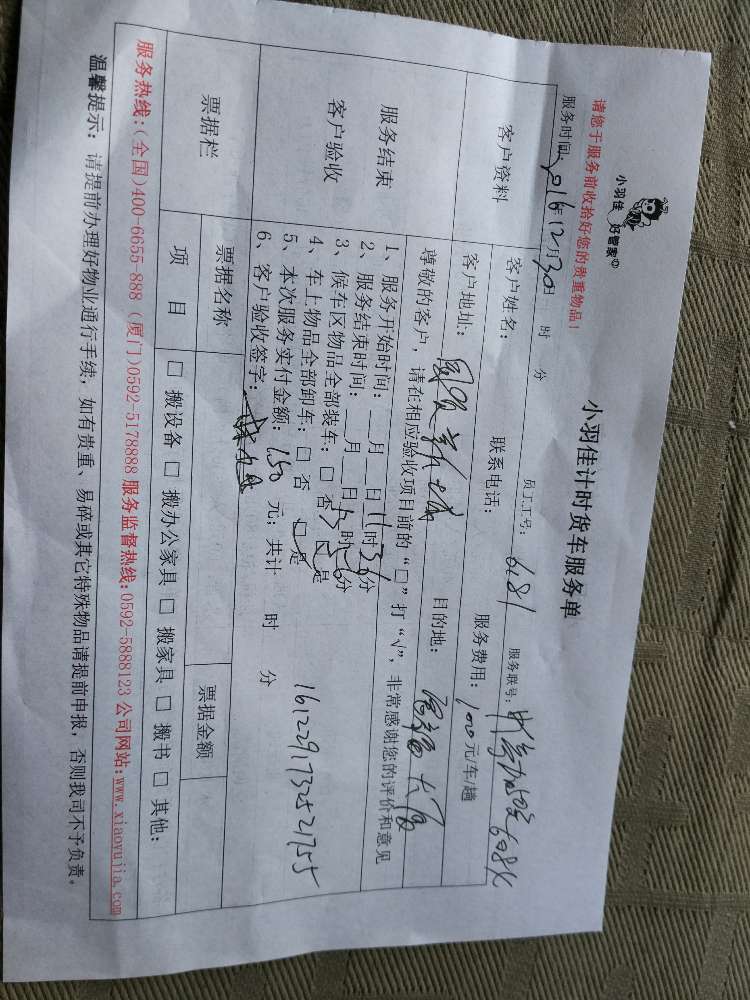 小羽佳 好管家
小羽佳计时货车服务单
请您于服务前收拾好您的贵重物品！
服务时间: 2016年12月30日 时 分 员工工号: 6181 服务联号:
客户资料 客户姓名: 联系电话: 服务费用: 元/车/趟
客户地址: 目的地:
尊敬的客户，请在相应验收项目前的“□”打“√”，非常感谢您的评价和意见
服务结束
客户验收
1、服务开始时间: __月__日11时36分
2、服务结束时间: __月__日13时56分
3、候车区物品全部装车: □ 否 ☑ 是
4、车上物品全部卸车: □ 否 ☑ 是
5、本次服务实付金额: 150 元; 共计 时 分
6、客户验收签字:
1612291732521755
票据栏 票据名称 票据金额
项 目 □ 搬设备 □ 搬办公家具 □ 搬家具 □ 搬书 □ 其他:
服务热线:(全国)400-6655-888 (厦门)0592-5178888 服务监督热线:0592-5888123 公司网站:www.xiaoyujia.com
温馨提示: 请提前办理好物业通行手续，如有贵重、易碎或其它特殊物品请提前申报，否则我司不予负责。